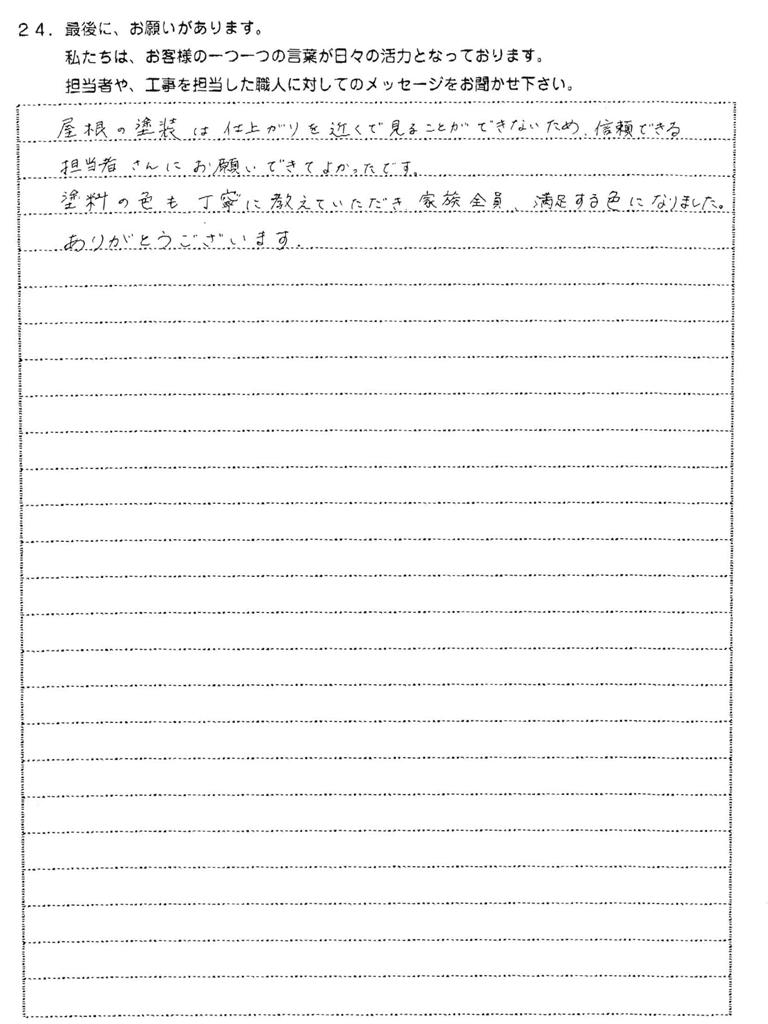 24. 最後に、お願いがあります。
私たちは、お客様の一つ一つの言葉が日々の活力となっております。
担当者や、工事を担当した職人に対してのメッセージをお聞かせ下さい。
屋根の塗装は仕上がりを近くで見ることができないため、信頼できる
担当者さんにお願いできてよかったです。
塗料の色も丁寧に教えていただき、家族全員、満足する色になりました。
ありがとうございます。